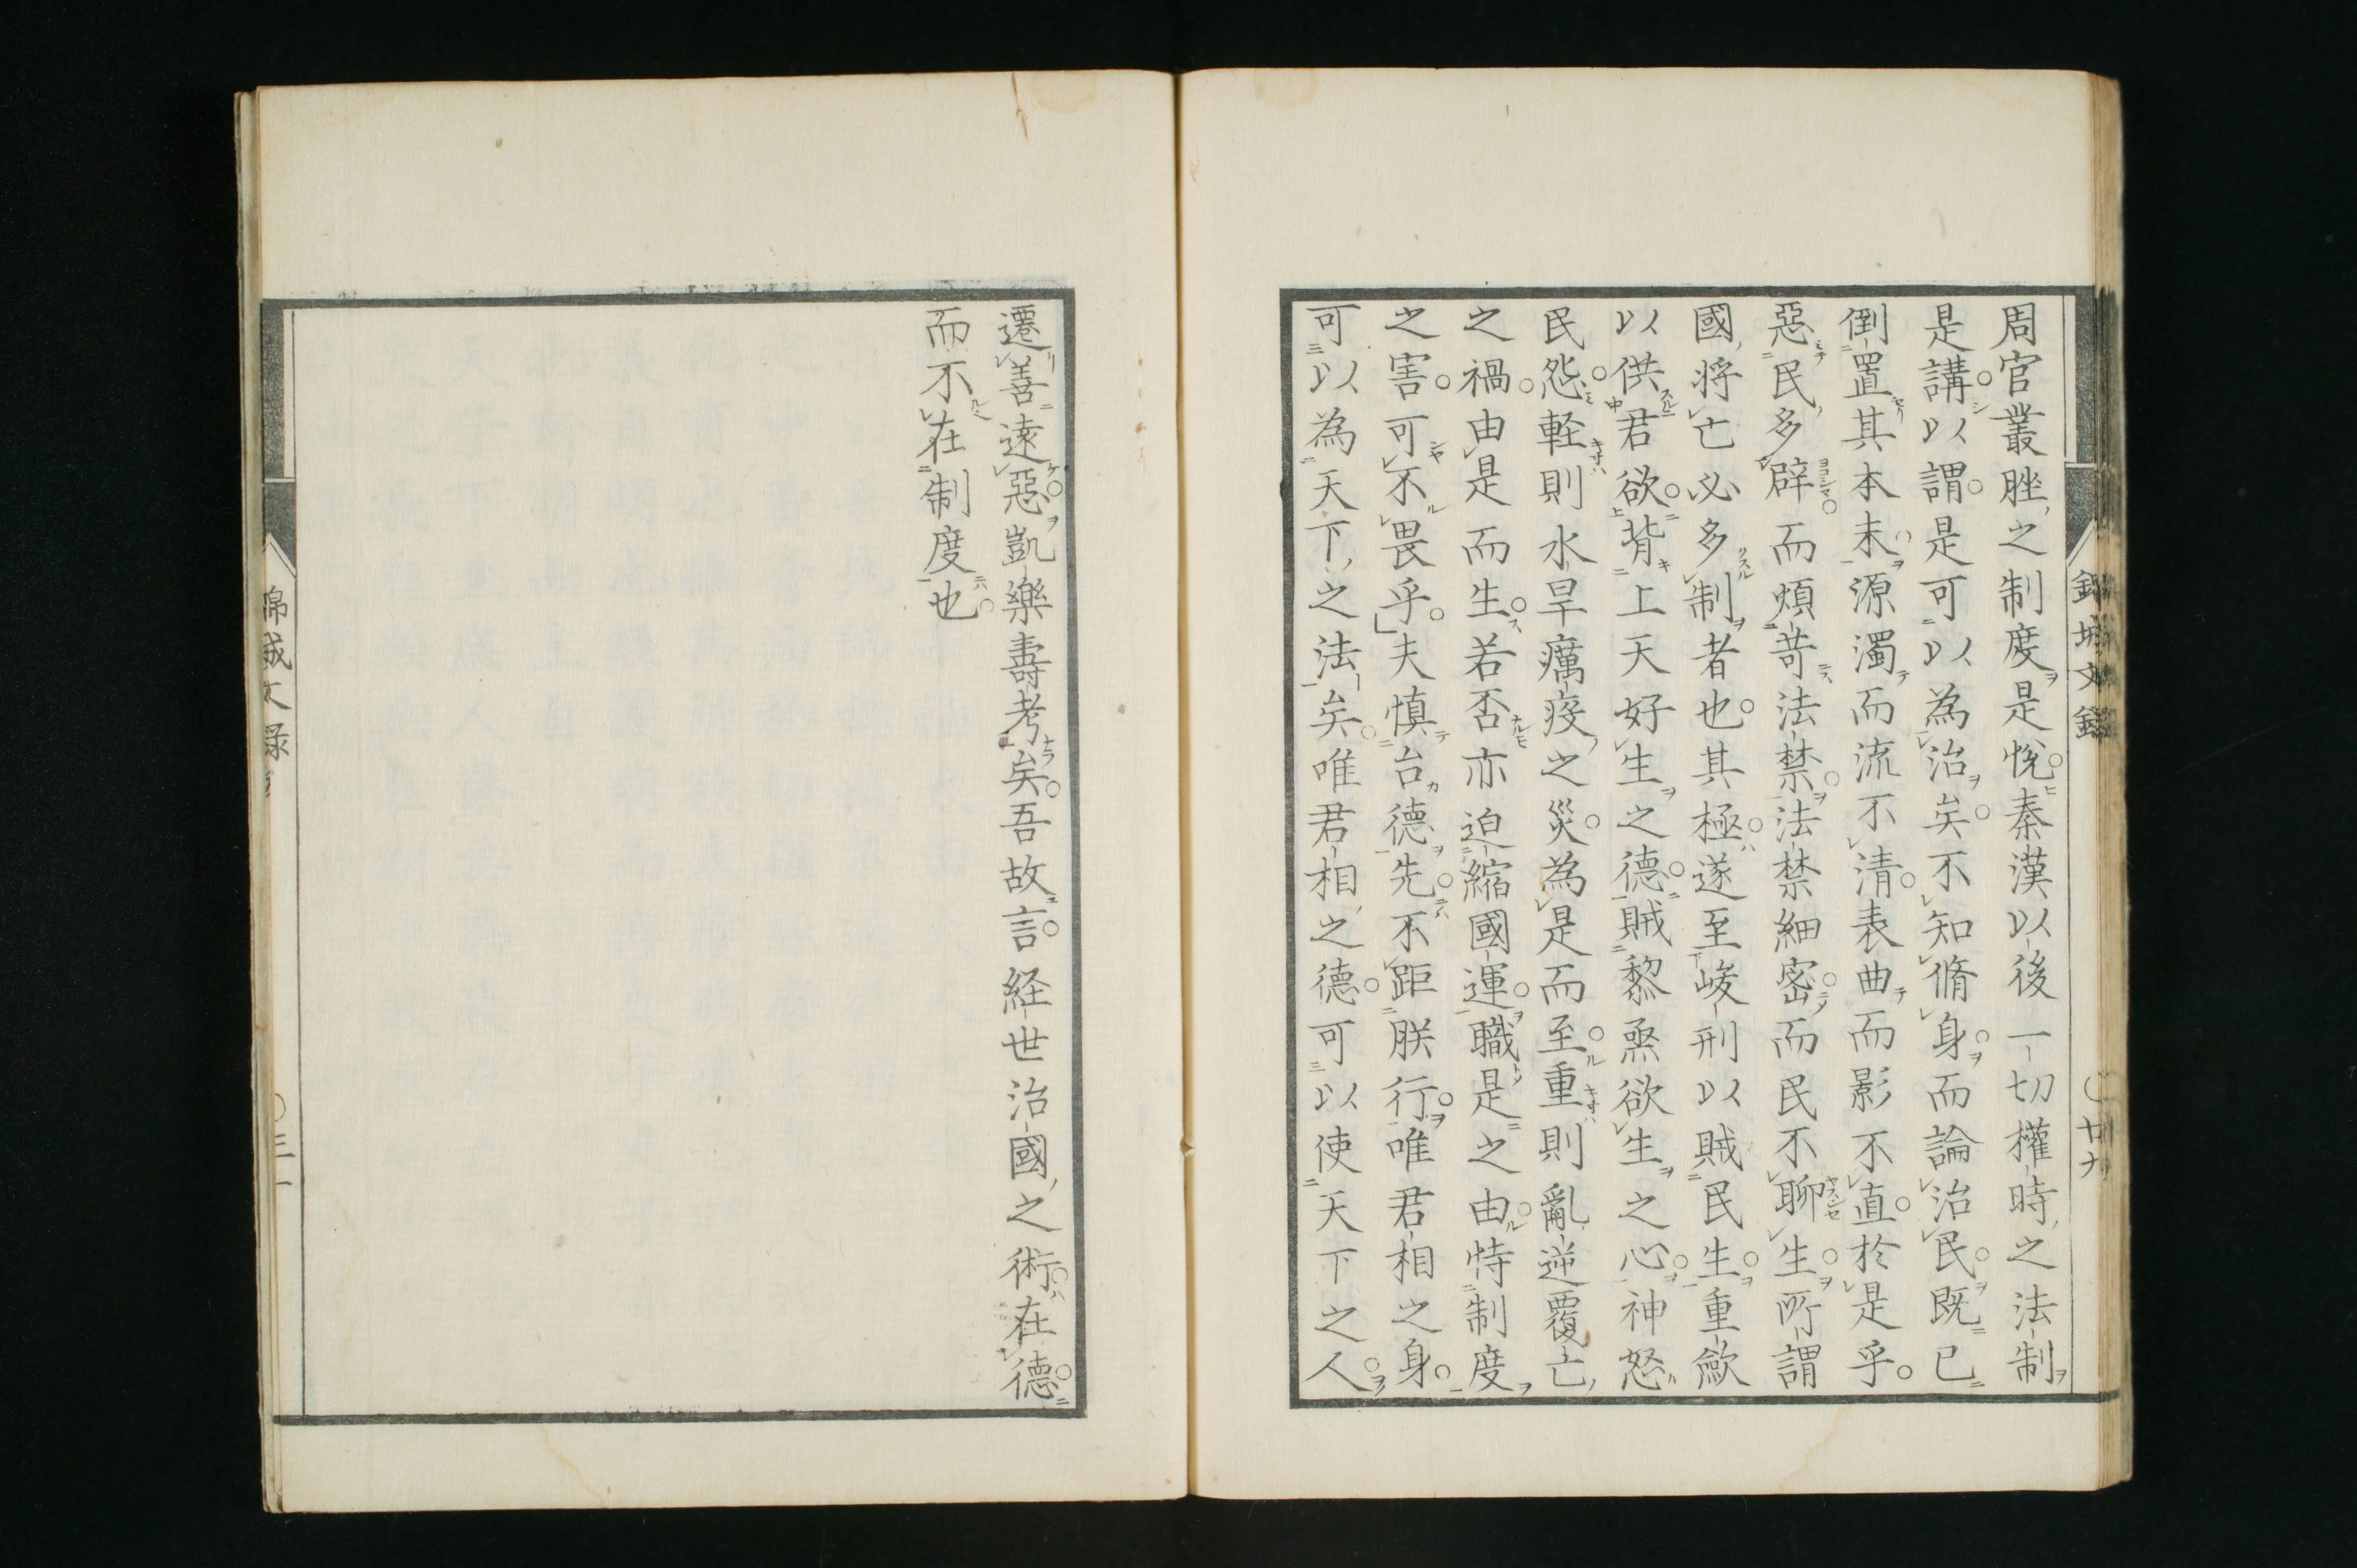 周官叢脞之制度是悅秦漢以後一切權時之法制
是講以謂是可以為治矣不知脩身而論治民既已
倒置其本末源濁而流不清表曲而影不直於是乎
惡民多辟而煩苛法禁法禁細密而民不聊生所謂
國將亡必多制者也其極遂至峻刑以賊民生重斂
以供君欲背上天好生之德賊黎烝欲生之心神怒
民怨軽則水旱癘疫之災為是而至重則亂逆覆亡
之禍由是而生若否亦迫縮國運職是之由恃制度
之害可不畏乎夫慎台德先不距朕行唯君相之身
可以為天下之法矣唯君相之德可以使天下之人
遷善遠惡凱樂壽考矣吾故言経世治國之術在德
而不在制度也
錦城文錄
〇廿九
錦城文録
〇三一